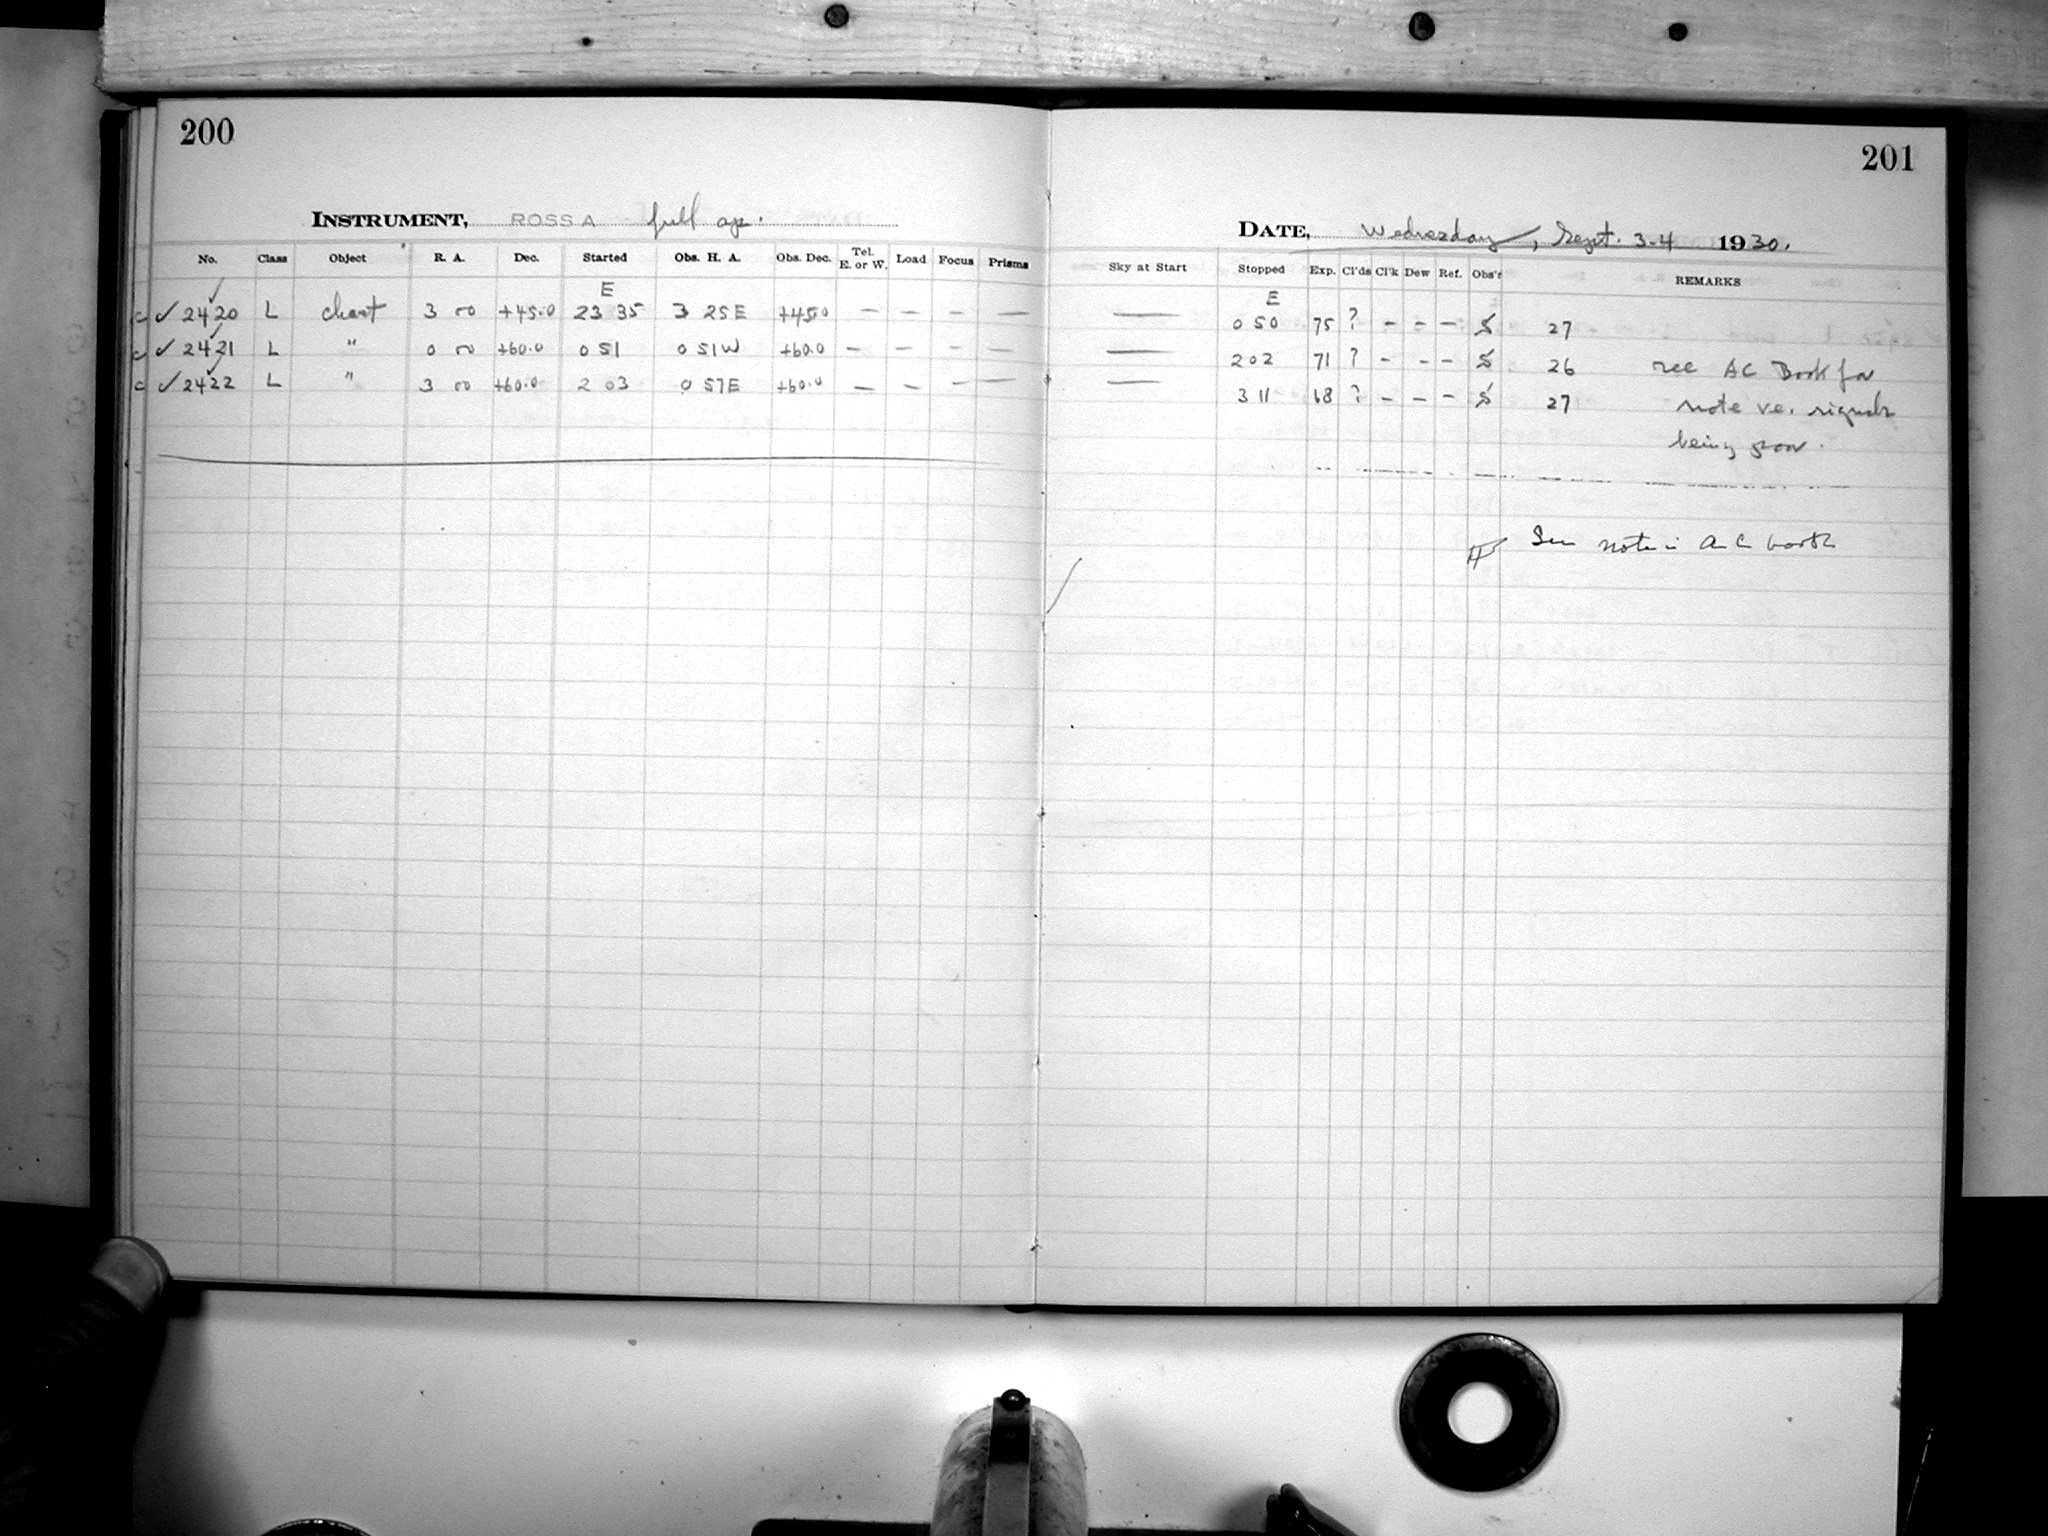 200
201
INSTRUMENT, ROSS A full ap.
DATE, Wednesday, Sept. 3-4 1930.
No. Class Object R. A. Dec. Started Obs. H. A. Obs. Dec. Tel. E. or W. Load Focus Prisms Sky at Start Stopped Exp. Cl'ds Cl'k Dew Ref. Obs'r REMARKS
E E
c ✓ 2420 L chart 3 00 +45.0 23 35 3 25E +45.0 — — — — — 0 50 75 ? – – – S 27
c ✓ 2421 L " 0 00 +60.0 0 51 0 51W +60.0 — — — — — 2 02 71 ? – – – S 26 see AC Book for
c ✓ 2422 L " 3 00 +60.0 2 03 0 57E +60.0 — — — — — 3 11 68 ? – – – S 27 note re. signals
being poor.
See note in AC book